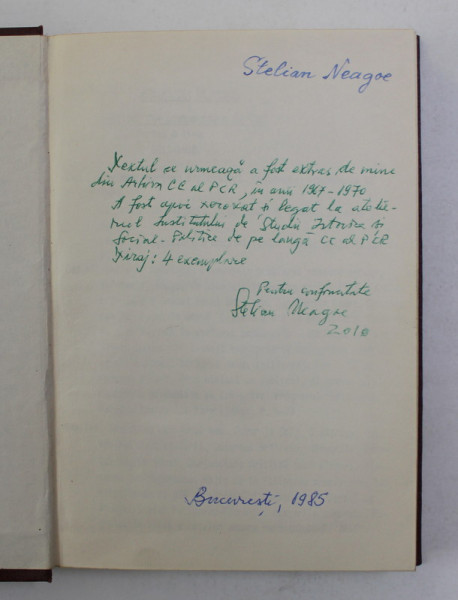 Stelian Neagoe
Textul ce urmează a fost extras de mine
din Arhiva CC al PCR, în anii 1967-1970
A fost apoi xeroxat și legat la atelie-
rul Institutului de Studii Istorice și
Social-Politice de pe lângă CC al PCR
Tiraj: 4 exemplare
Pentru conformitate
Stelian Neagoe
2010
București, 1985